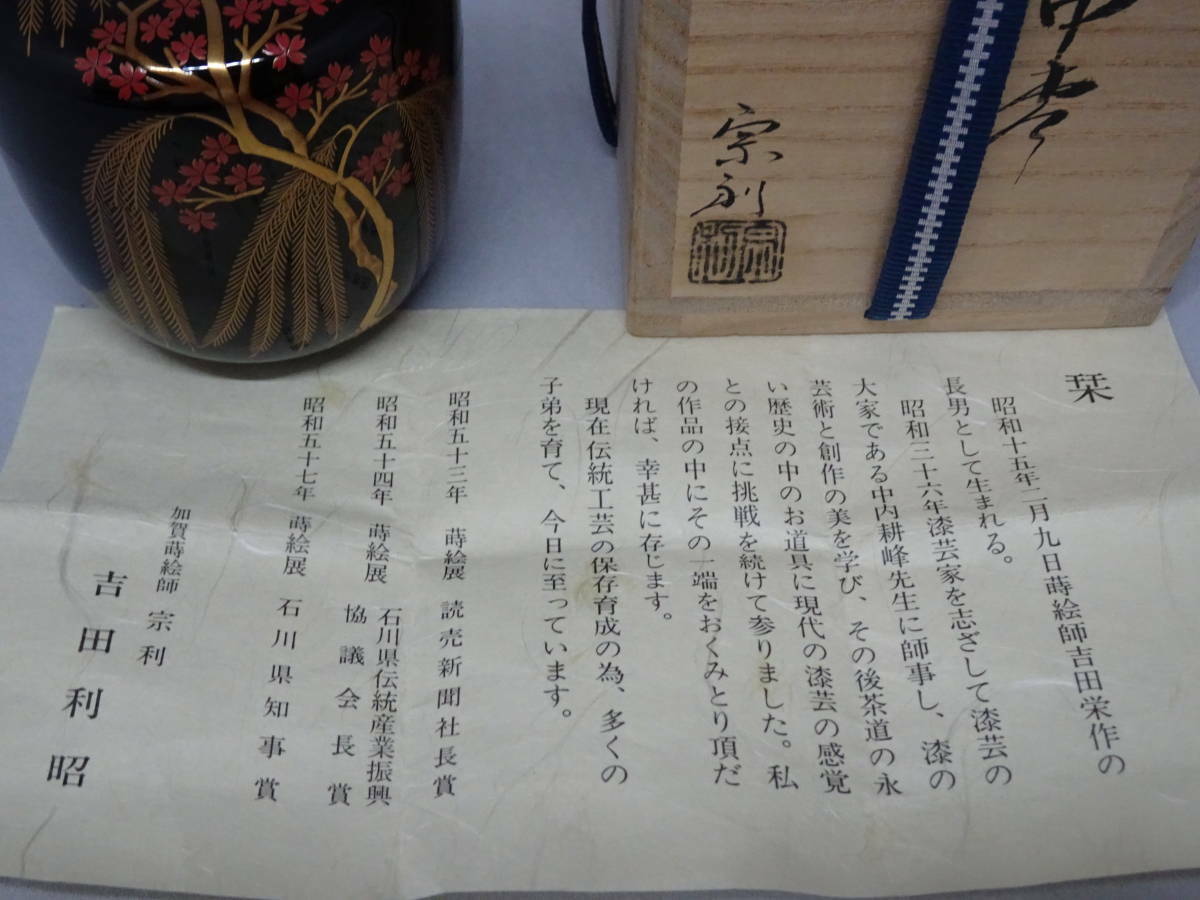 中棗
宗利
栞
昭和十五年二月九日蒔絵師吉田栄作の
長男として生まれる。
昭和三十六年漆芸家を志ざして漆芸の
大家である中内耕峰先生に師事し、漆の
芸術と創作の美を学び、その後茶道の永
い歴史の中のお道具に現代の漆芸の感覚
との接点に挑戦を続けて参りました。私
の作品の中にその一端をおくみとり頂だ
ければ、幸甚に存じます。
現在伝統工芸の保存育成の為、多くの
子弟を育て、今日に至っています。
昭和五十三年 蒔絵展 読売新聞社長賞
昭和五十四年 蒔絵展 石川県伝統産業振興
協議会長賞
昭和五十七年 蒔絵展 石川県知事賞
加賀蒔絵師 宗利
吉田利昭